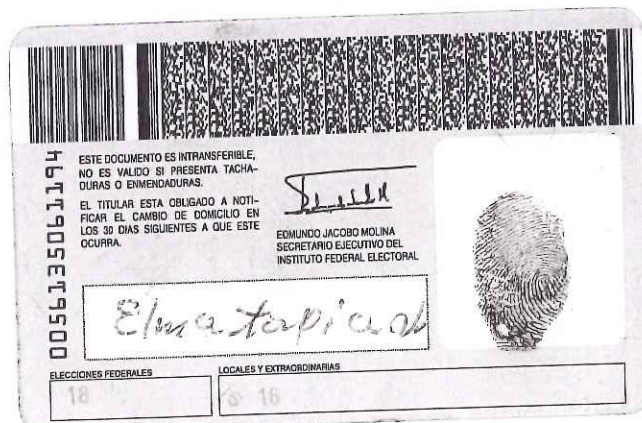 0056135061194
ESTE DOCUMENTO ES INTRANSFERIBLE,
NO ES VALIDO SI PRESENTA TACHA-
DURAS O ENMENDADURAS.
EL TITULAR ESTA OBLIGADO A NOTI-
FICAR EL CAMBIO DE DOMICILIO EN
LOS 30 DIAS SIGUIENTES A QUE ESTE
OCURRA.
EDMUNDO JACOBO MOLINA
SECRETARIO EJECUTIVO DEL
INSTITUTO FEDERAL ELECTORAL
Elma tapia
ELECCIONES FEDERALES
18
LOCALES Y EXTRAORDINARIAS
18